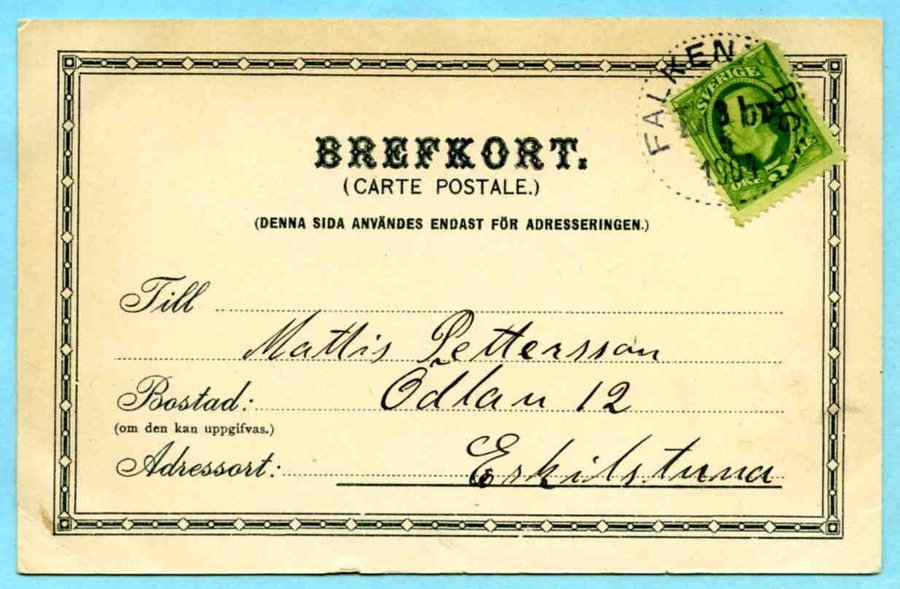 FALKEN RG
SVERIGE
1904
BREFKORT.
(CARTE POSTALE.)
(DENNA SIDA ANVÄNDES ENDAST FÖR ADRESSERINGEN.)
Till
Mattis Pettersson
Bostad: Odlan 12
(om den kan uppgifvas.)
Adressort: Eskilstuna